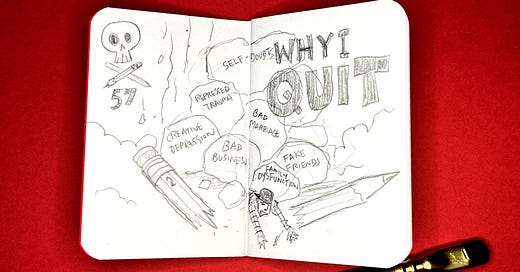 57
SELF-DOUBT
WHY I
QUIT
REPRESSED
TRAUMA
BAD
MARRIAGE
CREATIVE
DEPRESSION
BAD
BUSINESS
FAKE
FRIENDS
FAMILY
DYSFUNCTION
2